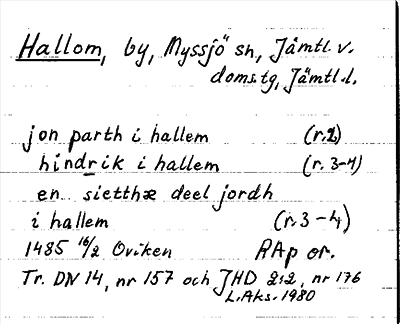 Hallom, by, Myssjö sn, Jämtl. v.
doms.tg, Jämtl. l.
jon parth i hallem (r. 2)
hindrik i hallem (r. 3-4)
en sietthæ deel jordh
i hallem (r. 3-4)
1485 16/2 Oviken RAp or.
Tr. DN 14, nr 157 och JHD 2:2, nr 176
L.Aks. 1980